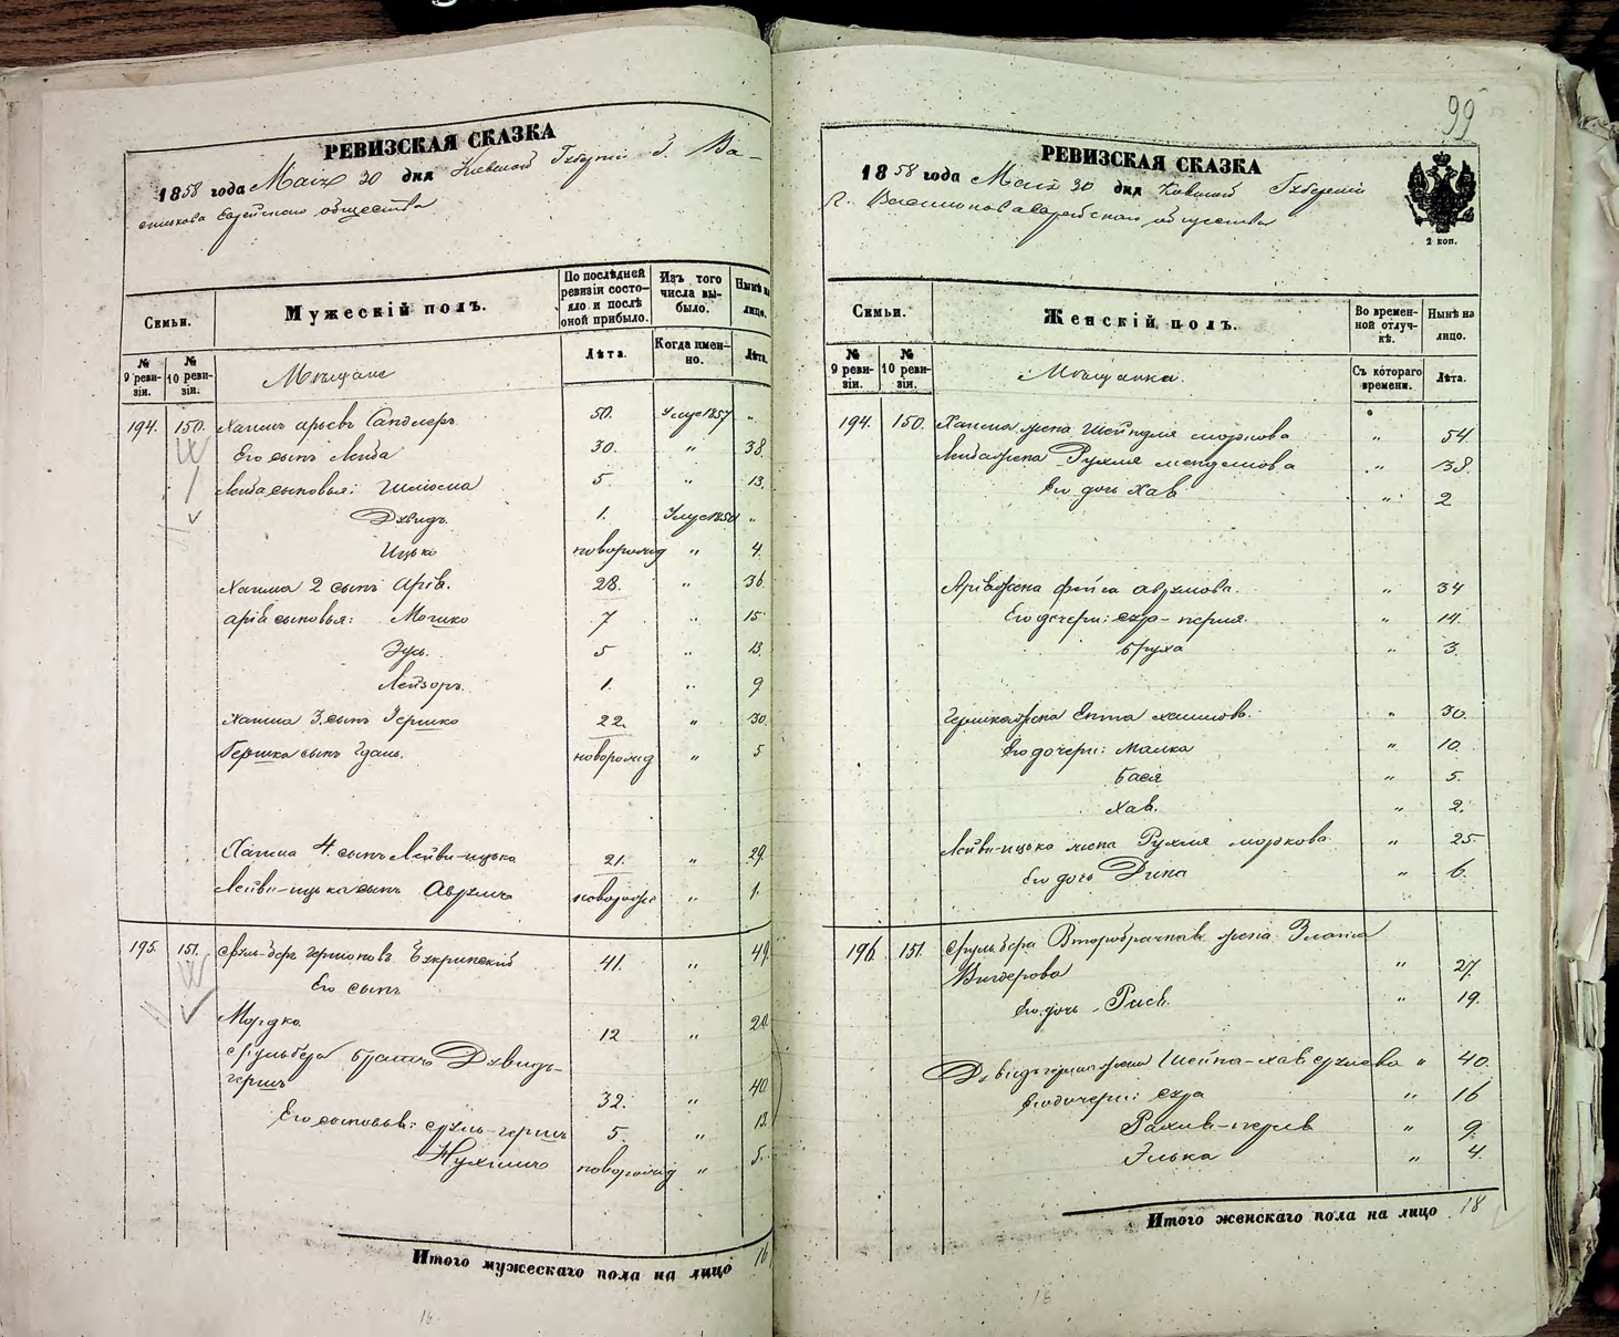 99
РЕВИЗСКАЯ СКАЗКА
1858 года Маія 30 дня Кіевской Губерніи г. Ва-
силькова Еврейскаго общества
Семьи.
Мужескій полъ.
По послѣдней ревизіи состояло и послѣ оной прибыло.
Изъ того числа выбыло.
Нынѣ на лицо.
№ 9 ревизіи.
№ 10 ревизіи.
Мѣщане
Лѣта.
Когда именно.
Лѣта.
194. 150. Хаима Арьевъ Сандлеръ 50. Умре 1857 "
Его сынъ Лейба 30. " 38.
Лейба сыновья: Шлиома 5 " 13.
Давидъ. 1. Умре 1850 "
Ицько новорожд " 4.
Хаима 2 сынъ Арiя. 28. " 36.
Арія сыновья: Мошко 7 " 15
Зусь. 5 " 13.
Лейзоръ. 1. " 9
Хаима 3. сынъ Гершко 22. " 30.
Гершка сынъ Іданъ. новорожд " 5
Хаима 4. сынъ Лейви-ицько 21. " 29.
Лейви-ицька сынъ Аврумъ новорожд " 1.
195. 151. Сруль-беръ Гершковъ 41. " 49.
Его сынъ
Мордко. 12 " 20.
Срульбера братъ Давидъ-
гершъ 32. " 40.
Его сыновья: Сруль-гершъ 5. " 13.
Нухимъ новорожд " 5.
Итого мужескаго пола на лицо 16
РЕВИЗСКАЯ СКАЗКА
1858 года Маія 30 дня Кіевской Губерніи
г. Василькова Еврейскаго общества
2 коп.
Семьи.
Женскій полъ.
Во временной отлучкѣ.
Нынѣ на лицо.
№ 9 ревизіи.
№ 10 ревизіи.
Мѣщанки.
Съ котораго времени.
Лѣта.
194. 150. Хаима жена Шейндля Моркова " 54
Лейба жена Рухля Менделиова " 38.
Его дочь Хая " 2
Арія жена Фейга Аврумова. " 34
Его дочери: Сура-перля. " 14.
Бруха " 3.
Гершка жена Ента Хаимова. " 30.
Его дочери: Малка " 10.
Бася " 5.
Хая. " 2.
Лейви-ицько жена Рухля Моркова " 25.
Его дочь Дина " 6.
196. 151. Срульбера Второбрачная жена Злата
" 27.
Его дочь Рися. " 19.
Давидъ герша жена Шейна-хая Срулева " 40.
Его дочери: Сура " 16
Рахиль-перля " 9
Элька " 4.
Итого женскаго пола на лицо 18
16
16